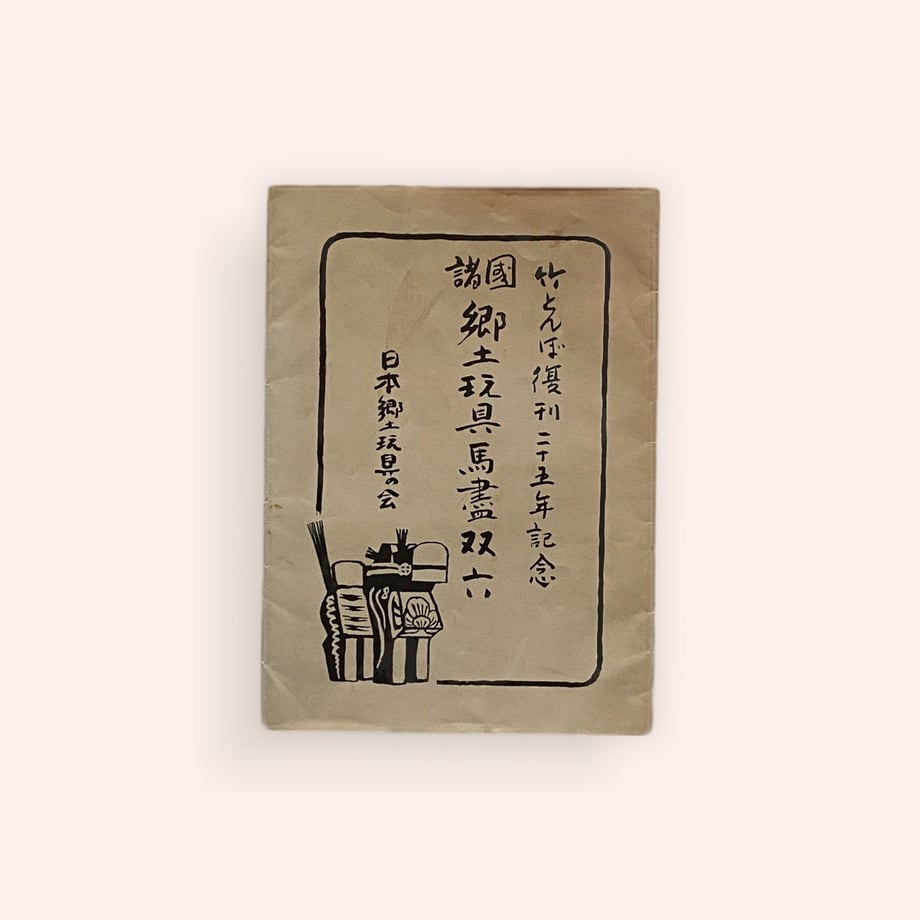 竹とんぼ復刊二十五年記念
諸國郷土玩具馬盡双六
日本郷土玩具の会